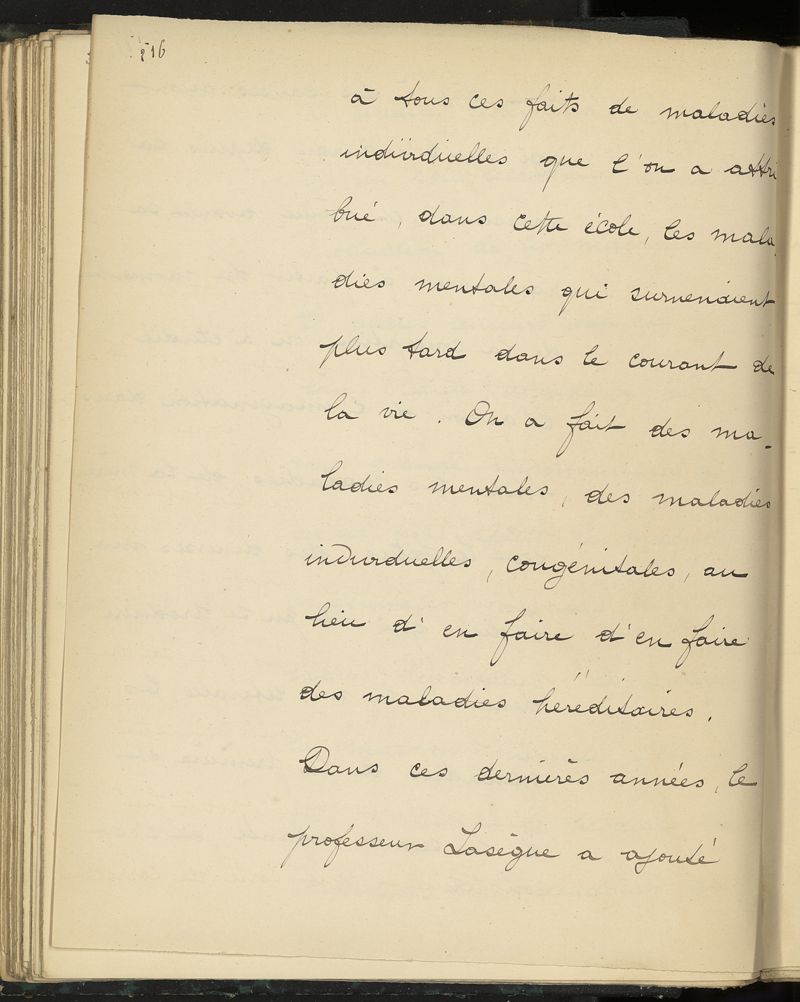 216
à tous ces faits de maladies
individuelles que l'on a attri
bué, dans cette école, les mala
dies mentales qui survenaient
plus tard dans le courant de
la vie. On a fait des ma-
ladies mentales, des maladies
individuelles, congénitales, au
lieu d'en faire d'en faire
des maladies héréditaires.
Dans ces dernières années, le
professeur Lasègue a ajouté